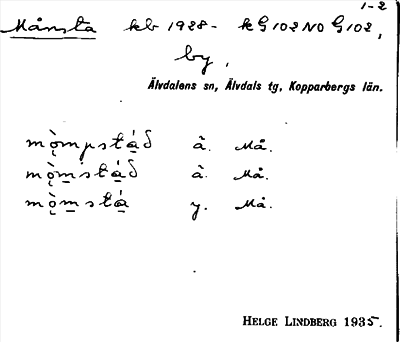 1-2
Månsta kb 1928- k G 102 NO G 102,
by,
Älvdalens sn, Älvdals tg, Kopparbergs län.
mǫ̀mpstá̱ð â. Må.
mǫ̀m̱stá̱ð â. Må.
mǫ̀m̱stá̱ y. Må.
HELGE LINDBERG 1935.